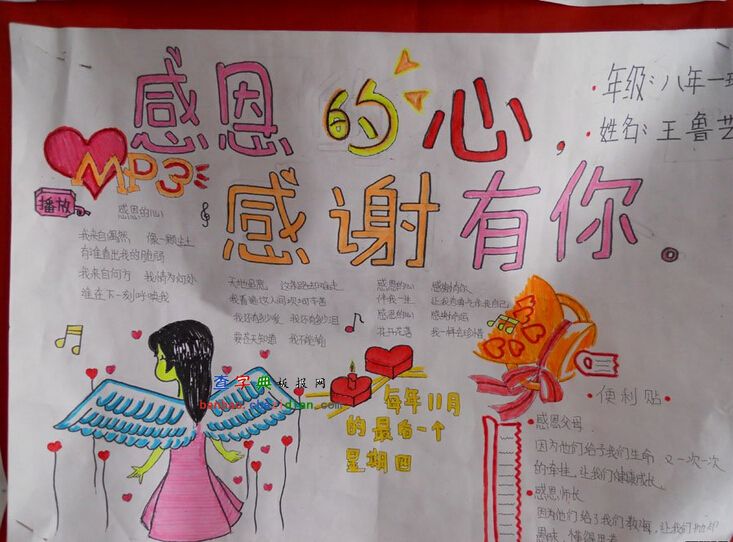 感恩的心,
感谢有你。
·年级:八年一班
·姓名:王鲁艺
MP3
播放
感恩的心
我来自偶然 像一颗尘土
有谁看出我的脆弱
我来自何方 我情归何处
谁在下一刻呼唤我
天地虽宽 这条路却难走
我看遍这人间坎坷辛苦
我还有多少爱 我还有多少泪
要苍天知道 我不认输
感恩的心 感谢有你
伴我一生 让我有勇气作我自己
感恩的心 感谢命运
花开花落 我一样会珍惜
查字典板报网
每年11月
的最后一个
星期四
·便利贴·
·感恩父母
因为他们给予我们生命 又一次一次
的牵挂,让我们健康成长。
·感恩师长
因为他们给了我们教诲,让我们